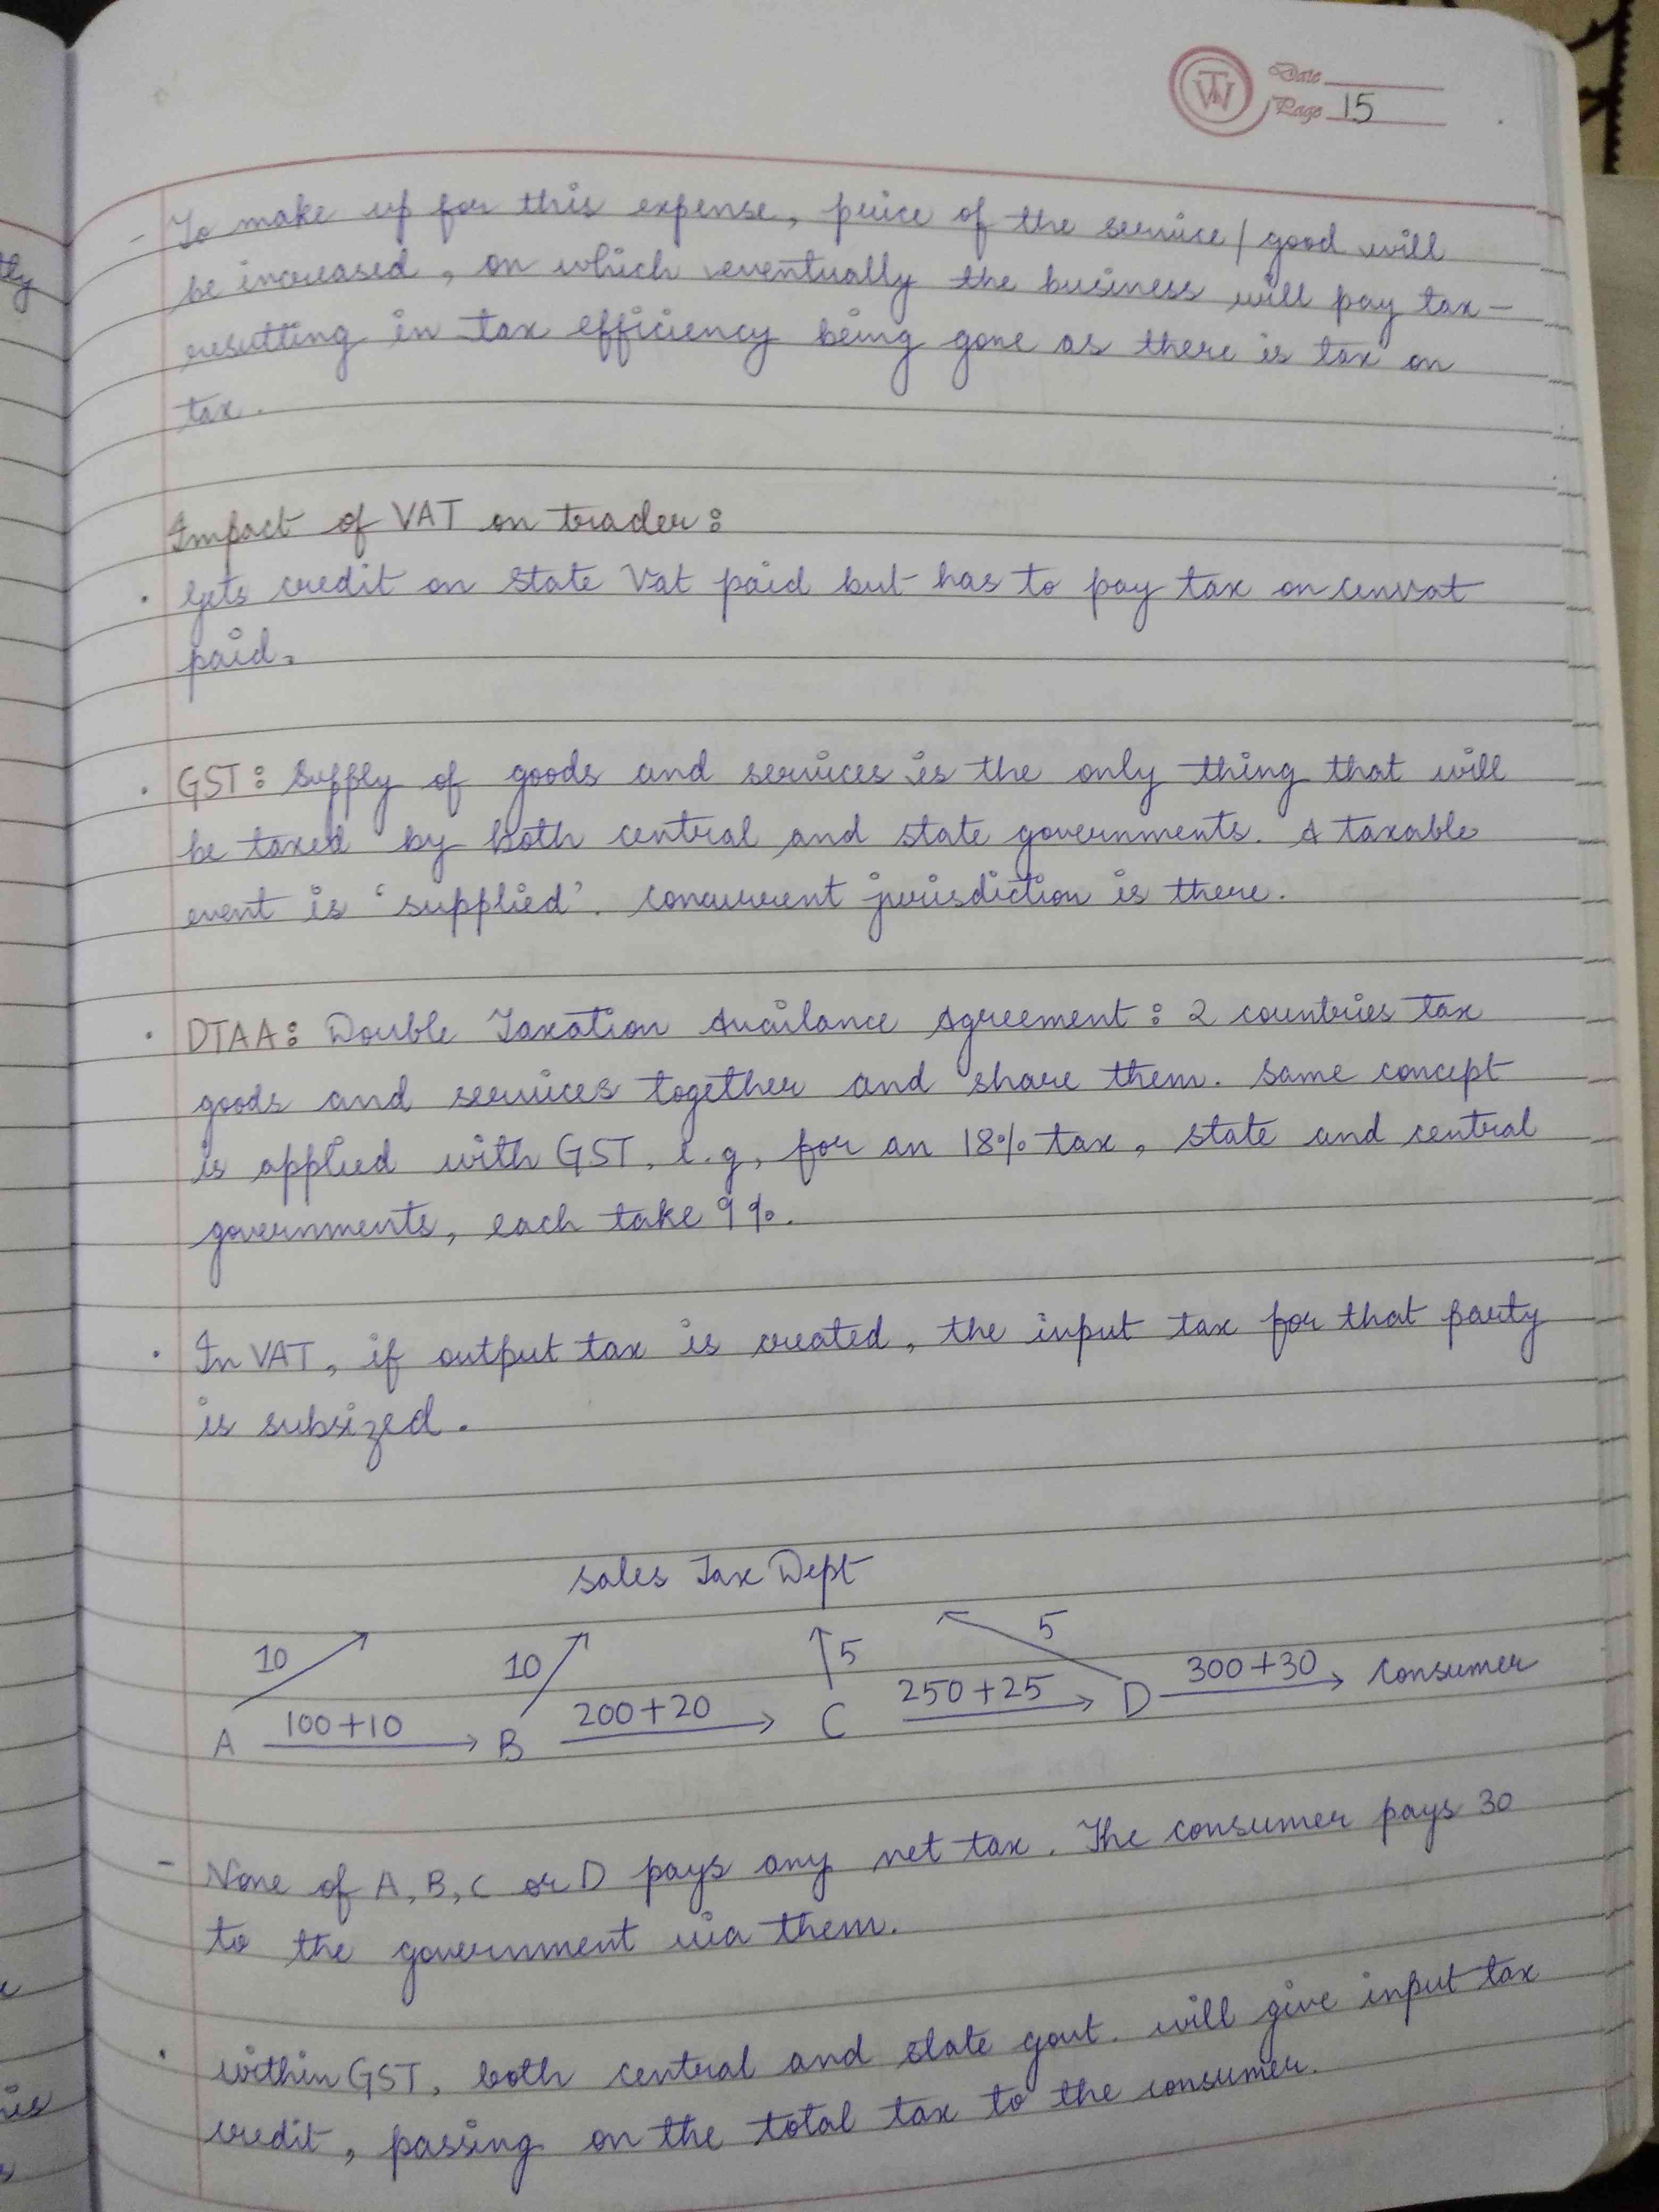 TW
Date
Page 15
- To make up for this expense, price of the service / good will
be increased, on which eventually the business will pay tax -
resulting in tax efficiency being gone as there is tax on
tax.
Impact of VAT on trader:
• Gets credit on State Vat paid but has to pay tax on cenvat
paid.
• GST: Supply of goods and services is the only thing that will
be taxed by both central and state governments. A taxable
event is 'supplied'. Concurrent jurisdiction is there.
• DTAA: Double Taxation Availance Agreement: 2 countries tax
goods and services together and share them. Same concept
is applied with GST, e.g, for an 18% tax, state and central
governments, each take 9%.
• In VAT, if output tax is created, the input tax for that party
is subsized.
Sales Tax Dept
10 10 5 5
A 100+10 B 200+20 C 250+25 D 300+30 Consumer
- None of A, B, C or D pays any net tax. The consumer pays 30
to the government via them.
• Within GST, both central and state govt. will give input tax
credit, passing on the total tax to the consumer.